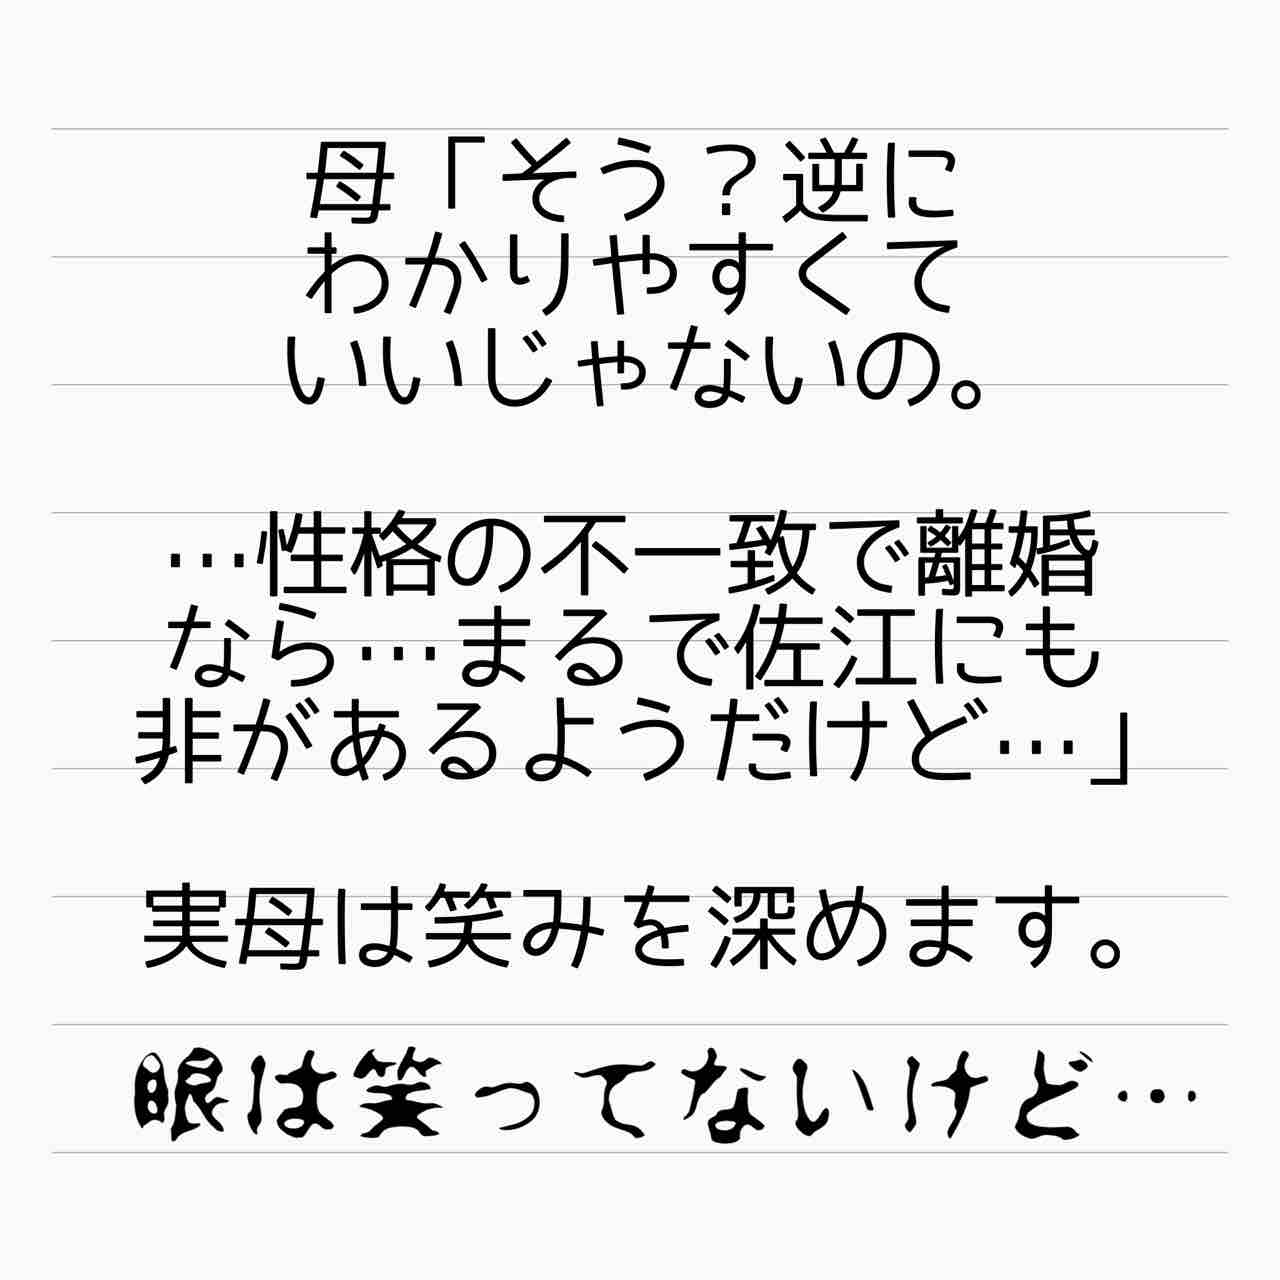 母「そう？逆に
わかりやすくて
いいじゃないの。
…性格の不一致で離婚
なら…まるで佐江にも
非があるようだけど…」
実母は笑みを深めます。
眼は笑ってないけど…